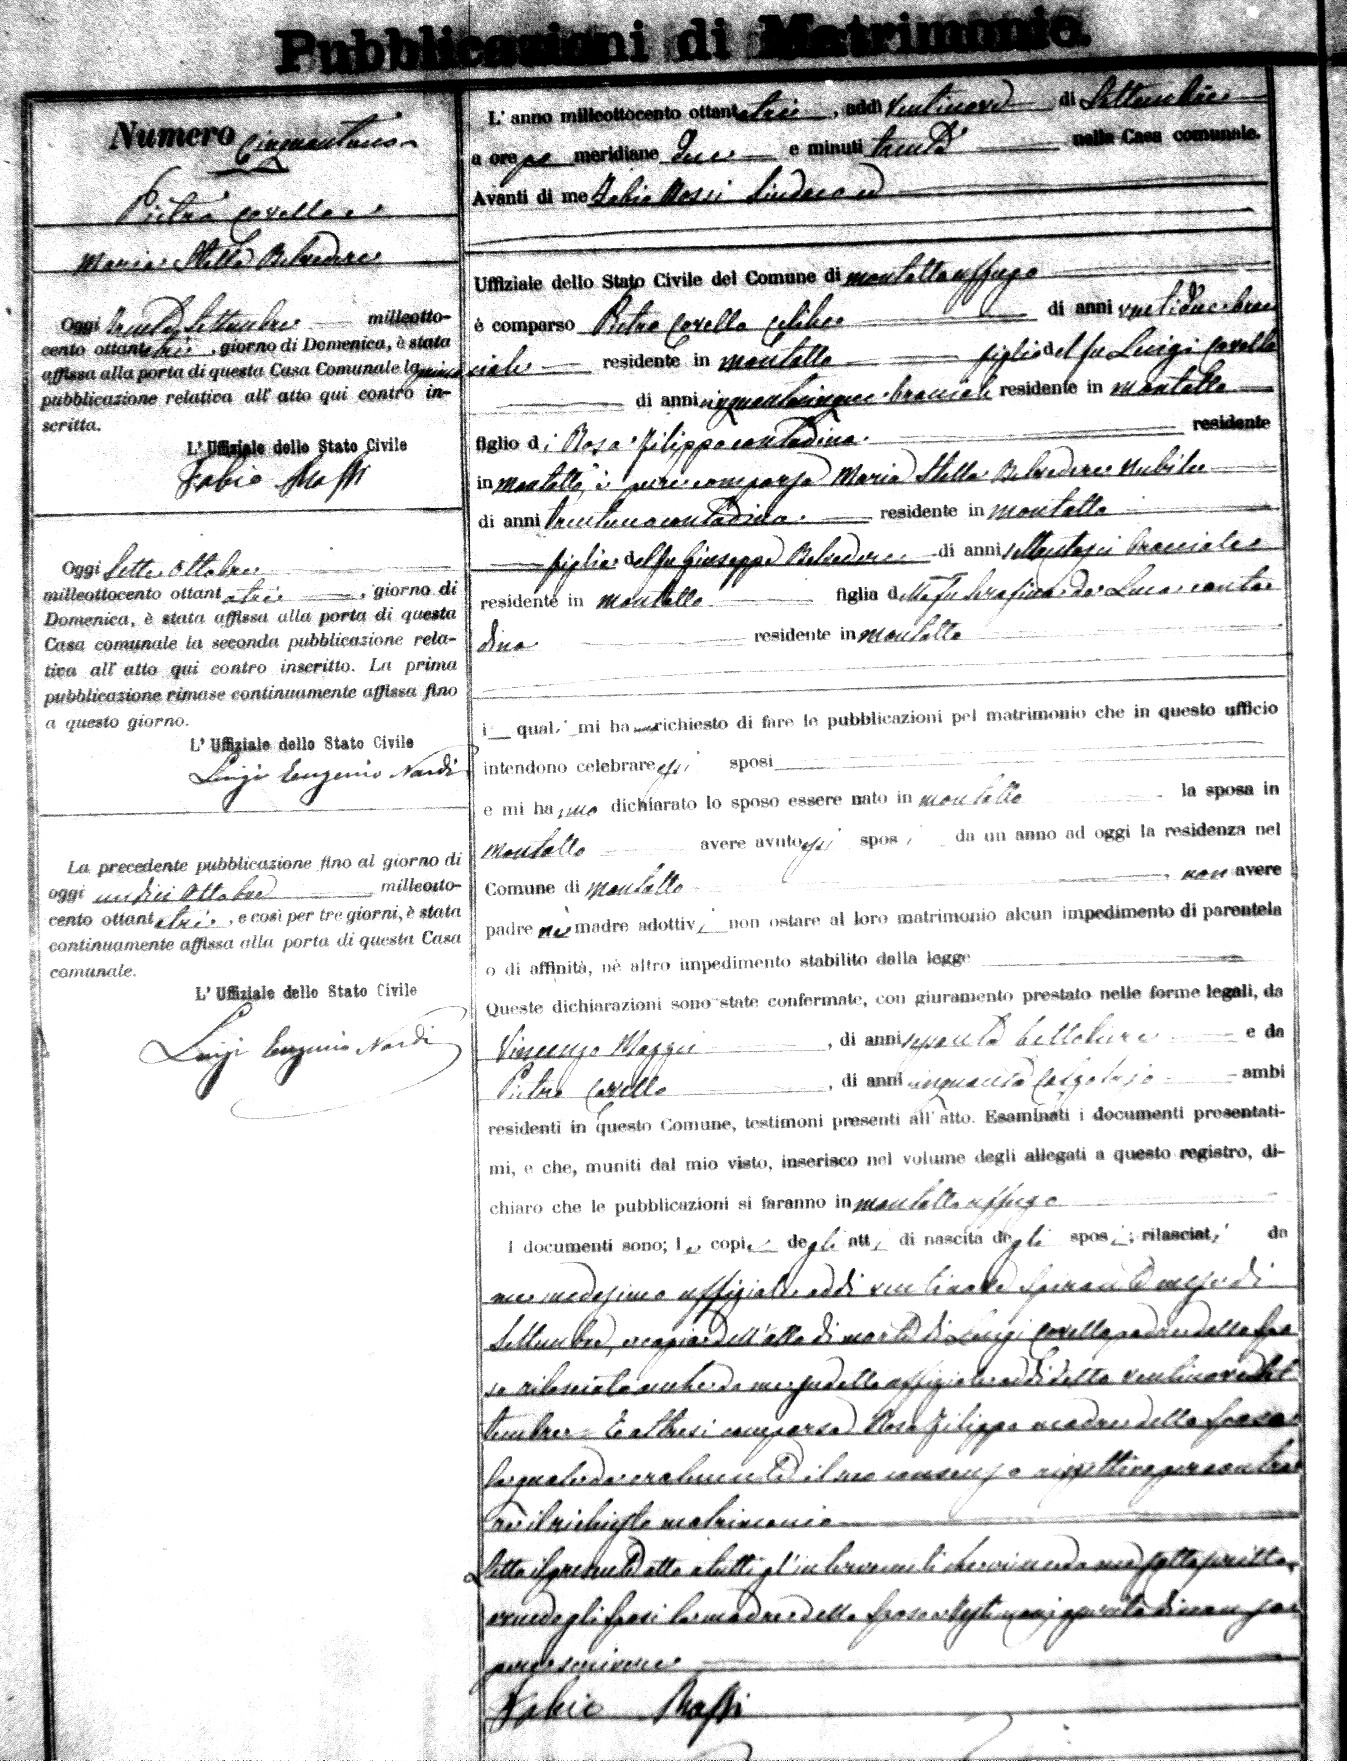 Pubblicazioni di Matrimonio.
Numero Cinquantuno
Pietro Covello e
Maria Stella Belvedere
Oggi trenta Settembre milleotto-
cento ottantatrè, giorno di Domenica, è stata
affissa alla porta di questa Casa Comunale la prima
pubblicazione relativa all'atto qui contro in-
scritta.
L'Uffiziale dello Stato Civile
Fabio Rossi
Oggi Sette Ottobre
milleottocento ottantatrè, giorno di
Domenica, è stata affissa alla porta di questa
Casa comunale la seconda pubblicazione rela-
tiva all'atto qui contro inscritto. La prima
pubblicazione rimase continuamente affissa fino
a questo giorno.
L'Uffiziale dello Stato Civile
Luigi Eugenio Nardi
La precedente pubblicazione fino al giorno di
oggi undici Ottobre milleotto-
cento ottantatrè, e così per tre giorni, è stata
continuamente affissa alla porta di questa Casa
comunale.
L'Uffiziale dello Stato Civile
Luigi Eugenio Nardi
L'anno milleottocento ottantatrè, addì ventinove di Settembre
a ore po meridiane due e minuti trenta nella Casa comunale.
Avanti di me Fabio Rossi Sindaco ed
Uffiziale dello Stato Civile del Comune di Montalto Uffugo
è comparso Pietro Covello celibe di anni ventidue brac
ciale residente in Montalto figlio del fu Luigi Covello
di anni cinquantacinque bracciale residente in Montalto
figlio di Rosa Filippo contadina residente
in Montalto, è pure comparsa Maria Stella Belvedere nubile
di anni trentuno contadina residente in Montalto
figlia del fu Giuseppe Belvedere di anni settantasei bracciale
residente in Montalto figlia della fu Serafina de Luca conta
dina residente in Montalto
i quali mi hanno richiesto di fare le pubblicazioni pel matrimonio che in questo ufficio
intendono celebrare essi sposi
e mi hanno dichiarato lo sposo essere nato in Montalto la sposa in
Montalto avere avuto essi sposi da un anno ad oggi la residenza nel
Comune di Montalto, non avere
padre nè madre adottivi non ostare al loro matrimonio alcun impedimento di parentela
o di affinità, nè altro impedimento stabilito dalla legge
Queste dichiarazioni sono state confermate, con giuramento prestato nelle forme legali, da
Vincenzo, di anni sessanta bettoliere e da
Pietro Covello, di anni cinquanta calzolajo ambi
residenti in questo Comune, testimoni presenti all'atto. Esaminati i documenti presentati-
mi, e che, muniti dal mio visto, inserisco nel volume degli allegati a questo registro, di-
chiaro che le pubblicazioni si faranno in Montalto Uffugo
I documenti sono; le copie degli atti di nascita degli sposi; rilasciati da
me medesimo uffiziale addì ventinove spirante mese di
Settembre, e copia dell'atto di morte di Luigi Covello padre dello spo
so rilasciata anche da me sudetto uffiziale addì detto ventinove Set
tembre = È altresì comparsa Rosa Filippo madre dello sposo
la quale dà oralmente il suo consenso rispettivo per contrar
re il richiesto matrimonio
Letto il presente atto a tutti gl'intervenuti che viene da me sottoscritto,
e non dagli sposi la madre dello sposo e testimonj per cità di non sa
pere scrivere
Fabio Rossi